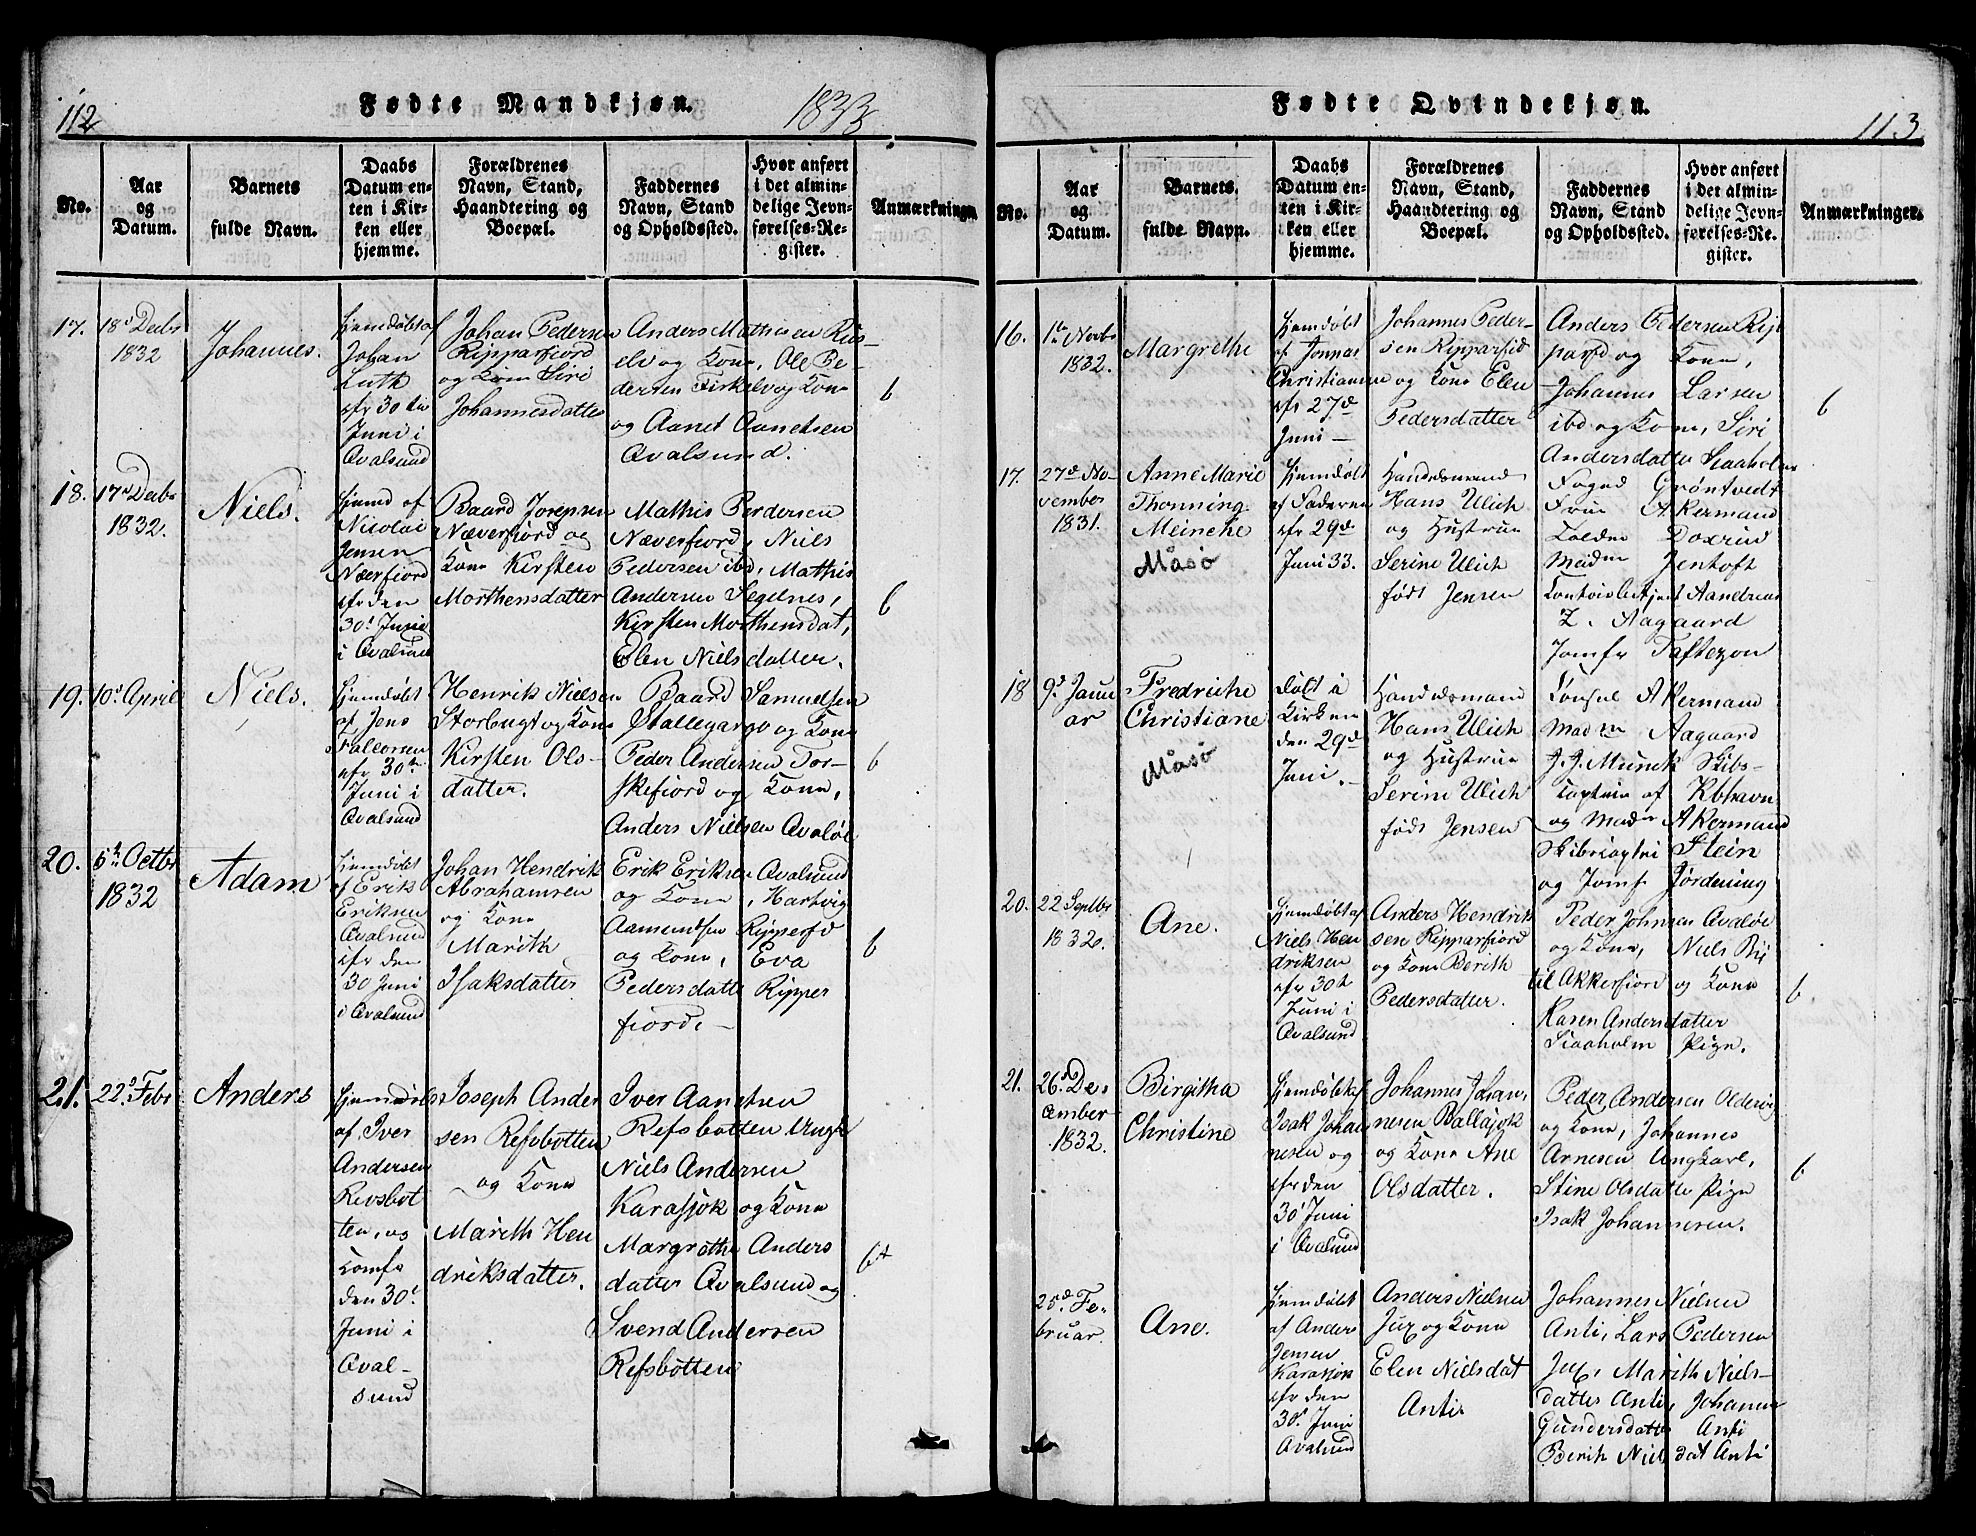 112
Fødte Mandkjøn.
1833
No.
Aar
og
Datum.
Barnets
fulde Navn.
Daabs
Datum en-
ten i Kir-
ken eller
hjemme.
Forældrenes
Navn, Stand,
Haandtering og
Boepæl.
Faddernes
Navn, Stand
og Opholdssted.
Hvor anført
i det almin-
delige Jevn-
førelses-Re-
gister.
Anmærkninger
17.
18d Decbr
1832
Johannes.
hjemdøbt af
Johan
Luth
cfr 30te
Juni i
Qvalsund
Johan Pedersen
Ripparfiord
og Kone Siri
Johannesdatter
Anders Mathisen Rus-
elv og Kone, Ole Pe-
dersen Firkelv og Kone
og Aanet Aanetsen
Qvalsund.
6
18.
17d Decbr
1832.
Niels.
hjemd af
Nicolai
Jensen
Næerfiord
cfr den
30d Juni
i Qvalsund
Baard Jorepsen
Næverfiord og
Kone Kirsten
Morthensdatter
Mathis Perdersen
Næverfiord, Niels
Pedersen ibd, Mathis
Andersen Segelnes,
Kirsten Morthensdat,
Elen Nielsdatter.
6
19.
10d April
Niels.
hjemdøbt
af Jens
Fallorsen
cfr 30te
Juni i
Qvalsund
Henrik Nielsen
Storbugt og Kone
Kirsten Ols-
datter.
Baard Samudsen
Stallegargo og Kone
Peder Andersen Tor-
skefiord og Kone,
Anders Nielsen Qvaløe
6
20.
5te Octbr
1832
Adam
hjemdøbt
af Erik
Eriksen
Qvalsund
cfr den
30 Juni
i Qvalsund
Johan Hendrik
Abrahamsen
og Kone
Marith
Isaksdatter
Erik Eriksen Qvalsund
og Kone, Hartvig
Aamundsen Ripperfd
og Kone, Eva
Pedersdatte Ripper
fiord.-
6
21.
22d Febr
Anders
hjemdøbt
af Iver
Andersen
Revsbot
ten, og
Comfr
den 30d
Juni i
Qval-
sund
Joseph Ander
sen Refsbotten
og Kone
Marith Hen
driksdatter.
Iver Aanetsen
Refsbotten Ungk
Niels Andersen
Karasjok og Kone
Margrethe Anders
datter Qvalsund og
Svend Andersen
Refsbotten
6+
Fødte Qvindekjøn.
113
No.
Aar
og
Datum.
Barnets.
fulde Navn.
Daabs
Datum en-
ten i Kir-
ken eller
hjemme.
Forældrenes
Navn, Stand,
Haandtering og
Boepæl.
Faddernes
Navn, Stand
og Opholdssted.
Hvor anført
i det almin-
delige Jevn-
førelses-Re-
gister.
Anmærkninger.
16.
1te Novbr
1832.
Margrethe
hjemdøbt
af Jonnas
Christiansen
cfr 27d
Juni -
Johannes Peder-
sen Ripparfid
og Kone Elen
Pedersdatter
Anders Pedersen Rip
parfd og Kone,
Johannes Larsen
ibd og Kone, Siri
Andersdatter Staaholm
6
17.
27d No-
vember
1831.
Anne Marie
Thonning
Meincke
Måsø
hjemdøbt
af Faderen
cfr 29d
Juni 33.
Handelsmand
Hans Ulich
og Hustrue
Serine Ulich
født Jensen
Foged Grøntvedt
Frue Akermand
Tolder Doxrud
Madm Jentoft
Contoirbetjent Aandreas
Z. Aagaard
Jomfr Taftezon
18
9d Janu
ar
Fredricke
Christiane
Måsø
Døbt i
Kirken
den 29d
Juni.-
Handelsmand
Hans Ulich
og Hustrue
Serine Ulich
født Jensen
Consul Akermand
Madm Aagaard
J. J. Munck Skibs-
Captein af Kbhavn
og Madm Akermand
Skibscaptei Stein
og Jomf Jørdening
20.
22 Septbr
1832.
Ane.
hjemdøbt af
Niels Hen
driksen
cfr 30te
Juni i
Qvalsund
Anders Hendrik
sen Ripparfiord
og Kone Berith
Pedersdatter.
Peder Johnsen Qvaløe
og Kone, Niels Bij
til Akkerfiord og Kone
Karen Andersdatter
Staaholm Pige.
6.
21.
26d De-
cember
1832.
Birgitha
Christine
hjemdøbt af
Isak Johan
nesen og
cfr den
30d Juni
i Qvalsund
Johannes Johan-
nesen Ballasjok
og Kone Ane
Olsdatter.
Peder Andersen Oldervig
og Kone, Johannes
Arnesen Ungkarl,
Stine Olsdatte Pige
Isak Johannesen.
6
25d Fe-
bruar.
Ane.
hjemdøbt
af Anders
Jensen
Karasjok
cfr den
30d Juni
Qvalsund
Anders Nielsen
Jux og Kone
Elen Nielsdat
Anti
Johannes Nielsen
Anti, Lars Pedersen
Jux, Marith Niels-
datter Anti, Johanne
Gundersdatter Anti
Berith Niels dat Anti